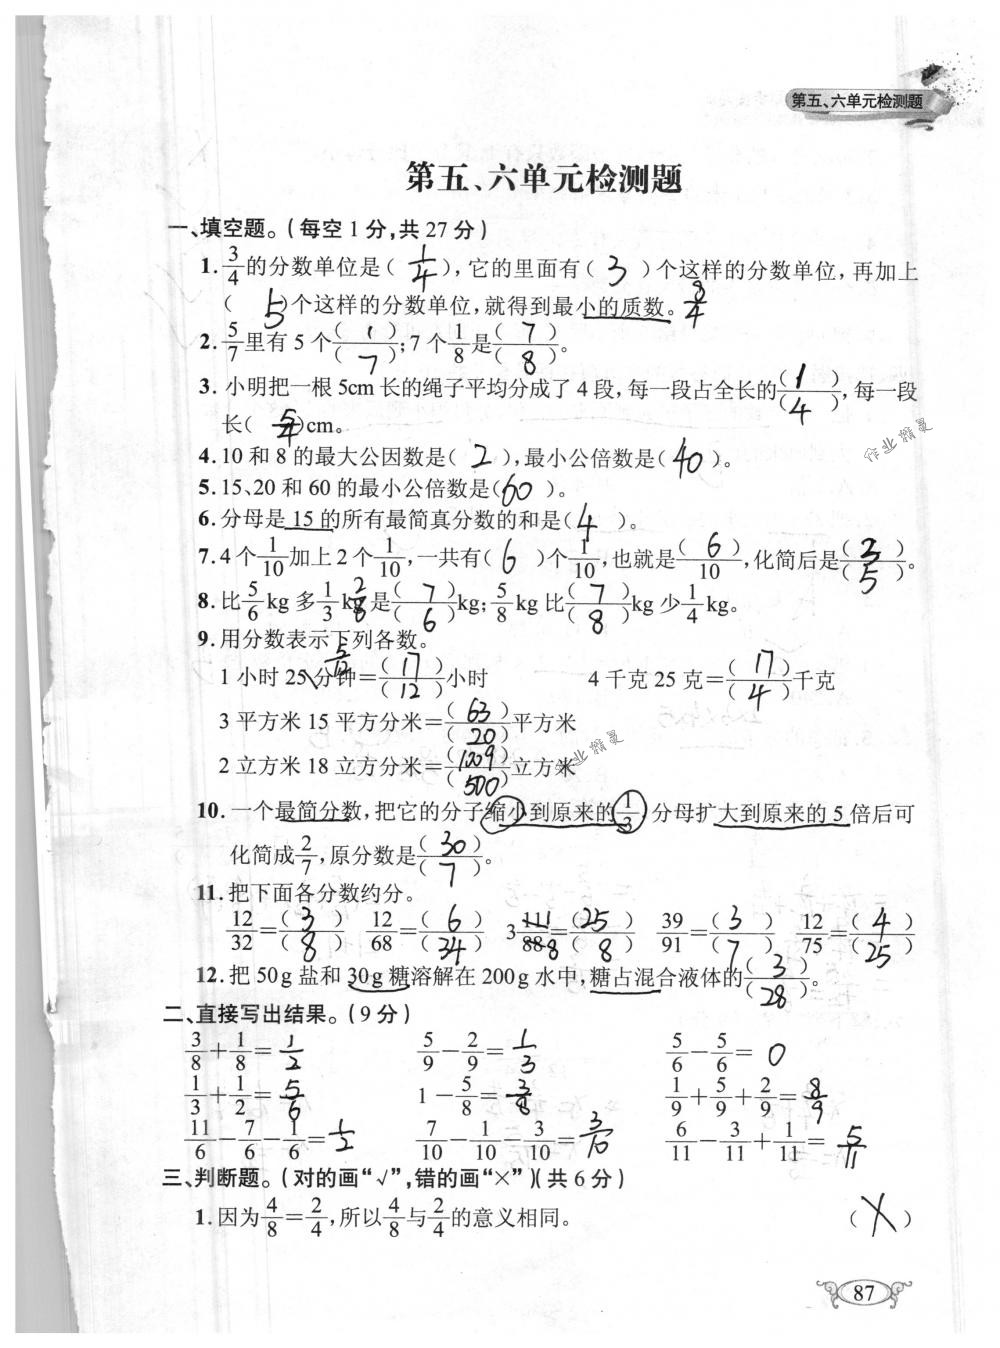 第五、六单元检测题
第五、六单元检测题
一、填空题。(每空1分,共27分)
1. 3/4的分数单位是( 1/4 ),它的里面有( 3 )个这样的分数单位,再加上
( 5 )个这样的分数单位,就得到最小的质数。8/4
2. 5/7里有5个( 1 )/( 7 );7个1/8是( 7 )/( 8 )。
3. 小明把一根5cm长的绳子平均分成了4段,每一段占全长的( 1 )/( 4 ),每一段
长( 5/4 )cm。
4. 10和8的最大公因数是( 2 ),最小公倍数是( 40 )。
5. 15、20和60的最小公倍数是( 60 )。
6. 分母是15的所有最简真分数的和是( 4 )。
7. 4个1/10加上2个1/10,一共有( 6 )个1/10,也就是( 6 )/10,化简后是( 3 )/( 5 )。
8. 比5/6kg多1/3kg是( 7 )/( 6 )kg;5/8kg比( 7 )/( 8 )kg少1/4kg。
9. 用分数表示下列各数。
1小时25分钟=( 17 )/( 12 )小时 4千克25克=( 17 )/( 4 )千克
3平方米15平方分米=( 63 )/( 20 )平方米
2立方米18立方分米=( 1009 )/( 500 )立方米
10. 一个最简分数,把它的分子缩小到原来的1/3,分母扩大到原来的5倍后可
化简成2/7,原分数是( 30 )/( 7 )。
11. 把下面各分数约分。
12/32=( 3 )/( 8 ) 12/68=( 6 )/( 34 ) 3 111/888=( 25 )/( 8 ) 39/91=( 3 )/( 7 ) 12/75=( 4 )/( 25 )
12. 把50g盐和30g糖溶解在200g水中,糖占混合液体的( 3 )/( 28 )。
二、直接写出结果。(9分)
3/8+1/8=1/2 5/9-2/9=1/3 5/6-5/6=0
1/3+1/2=5/6 1-5/8=3/8 1/9+5/9+2/9=8/9
11/6-7/6-1/6=1/2 7/10-1/10-3/10=3/10 6/11-3/11+1/11=5/11
三、判断题。(对的画“√”,错的画“×”)(共6分)
1. 因为4/8=2/4,所以4/8与2/4的意义相同。 ( × )
87
作业精灵
作业精灵